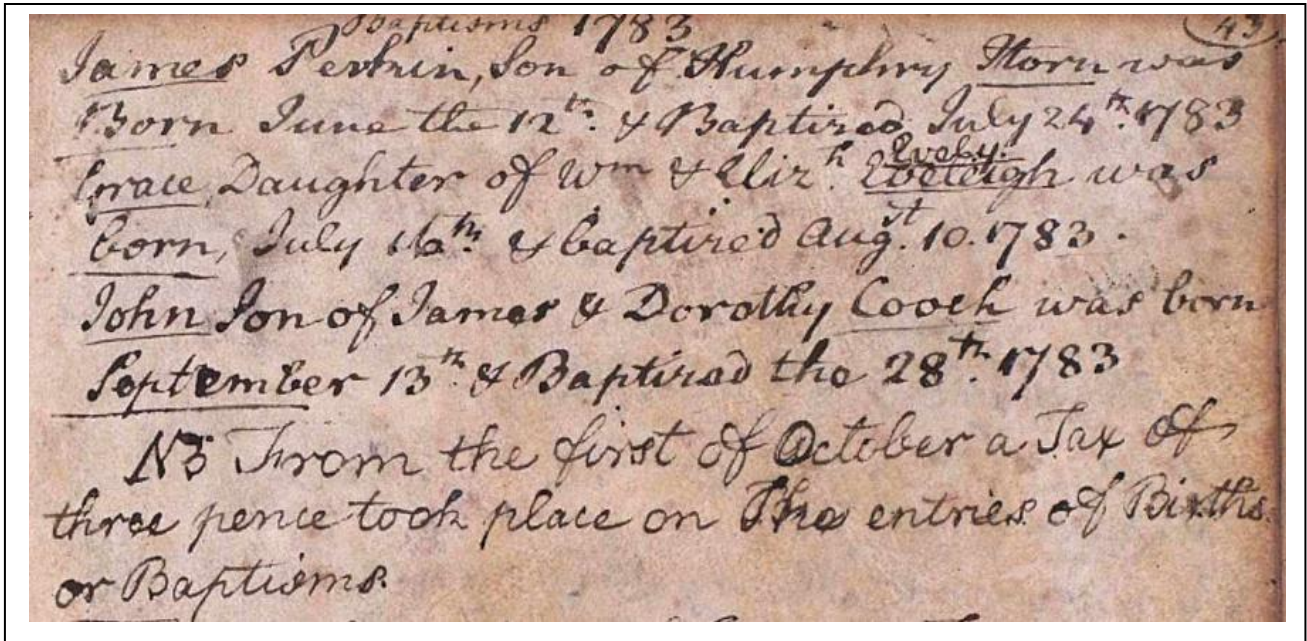 Baptisms 1783 43
James Perkin, Son of Humphry Horn was
Born June the 12th. & Baptized July 24th. 1783
Evely.
Grace, Daughter of Wm & Elizh. Eveleigh was
born, July 16th & baptized Augst. 10. 1783.
John Son of James & Dorothy Cooek was born
September 13th. & Baptized the 28th. 1783
NB From the first of October a Tax of
three pence took place on The entries of Births
or Baptisms.